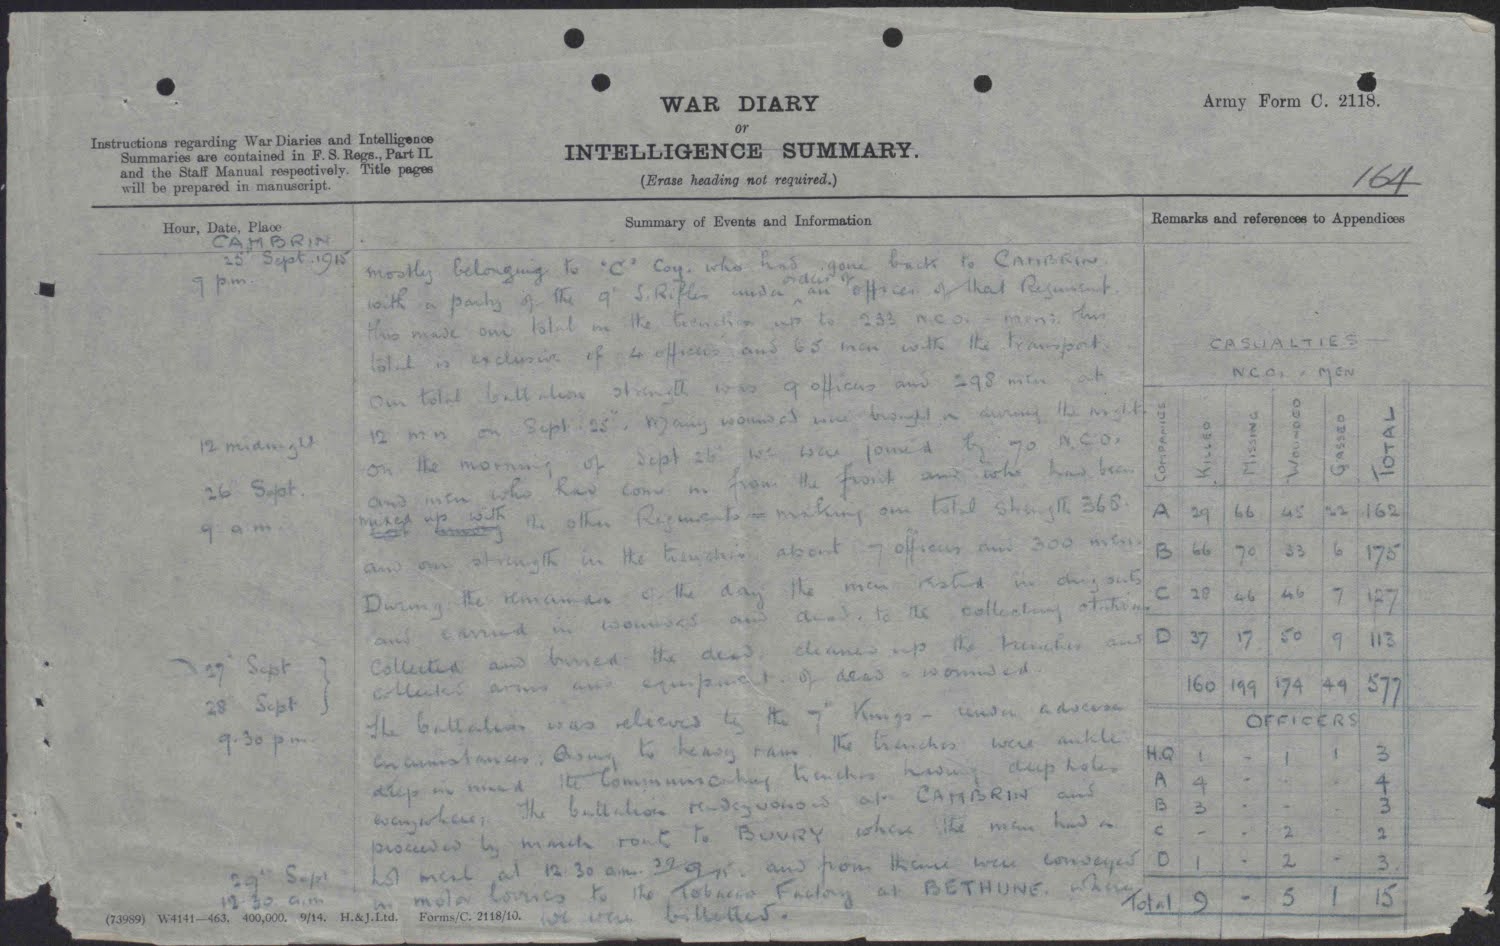 WAR DIARY
or
INTELLIGENCE SUMMARY.
(Erase heading not required.)
Army Form C. 2118.
Instructions regarding War Diaries and Intelligence
Summaries are contained in F. S. Regs., Part II.
and the Staff Manual respectively. Title pages
will be prepared in manuscript.
164
Hour, Date, Place
Summary of Events and Information
Remarks and references to Appendices
CAMBRIN
25 Sept. 1915
9 p.m.
mostly belonging to "C" Coy. who had gone back to CAMBRIN.
with a party of the 9th S. Rifles under order of an officer of that Regiment.
this made our total in the trenches up to 233 N.C.O. - men; this
total is exclusive of 4 officers and 65 men with the transport.
Our total battalion strength was 9 officers and 298 men at
12 midnight
12 mn on Sept. 25th. Many wounded were brought in during the night.
26 Sept.
On the morning of Sept 26 we were joined by 70 N.C.O.
and men who had come in from the front and who had been
9 a.m.
mixed up with the other Regiments = making our total strength 368.
and our strength in the trenches about 7 officers and 300 men.
During the remainder of the day the men rested in dug outs
and carried in wounded and dead to the collecting stations
27th Sept
28 Sept
Collected and buried the dead, cleaned up the trenches and
collected arms and equipment of dead & wounded.
9.30 p.m.
The battalion was relieved by the 7th Kings - under adverse
circumstances, Owing to heavy rain the trenches were ankle
deep in mud the Communicating trenches having deep holes
everywhere; The battalion rendezvoused at CAMBRIN and
proceeded by march route to BUVRY where the men had a
29th Sept
12.30 a.m
hot meal at 12.30 a.m. 29 and from thence were conveyed
in motor lorries to the Tobacco Factory at BETHUNE. where
we were billetted.
CASUALTIES
N.C.O. & MEN
COMPANIES KILLED MISSING WOUNDED GASSED TOTAL
A 29 66 45 22 162
B 66 70 33 6 175
C 28 46 46 7 127
D 37 17 50 9 113
160 199 174 44 577
OFFICERS
H.Q 1 - 1 1 3
A 4 - - - 4
B 3 - - - 3
C - - 2 2
D 1 - 2 - 3
Total 9 - 5 1 15
(73989) W4141—463. 400,000. 9/14. H.&J.Ltd. Forms/C. 2118/10.